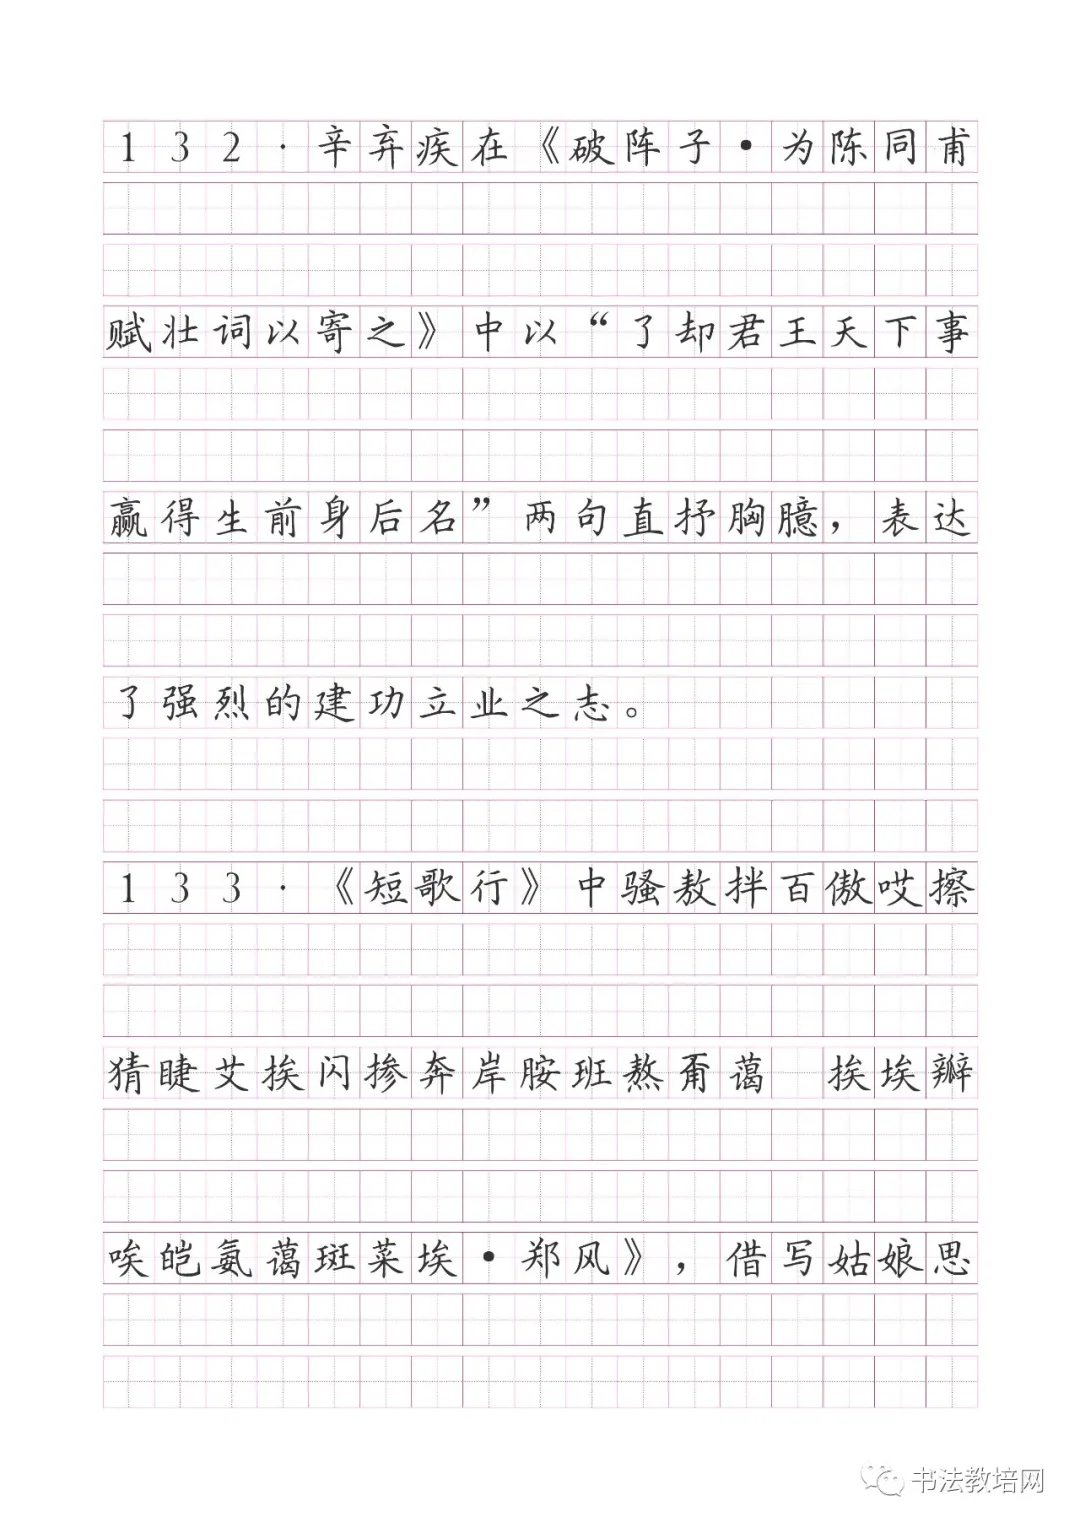 132·辛弃疾在《破阵子·为陈同甫
赋壮词以寄之》中以“了却君王天下事
赢得生前身后名”两句直抒胸臆，表达
了强烈的建功立业之志。
133·《短歌行》中骚敖拌百傲哎擦
猜睫艾挨闪掺奔岸胺班熬甭蔼 挨埃瓣
唉皑氨蔼斑菜埃·郑风》，借写姑娘思
书法教培网